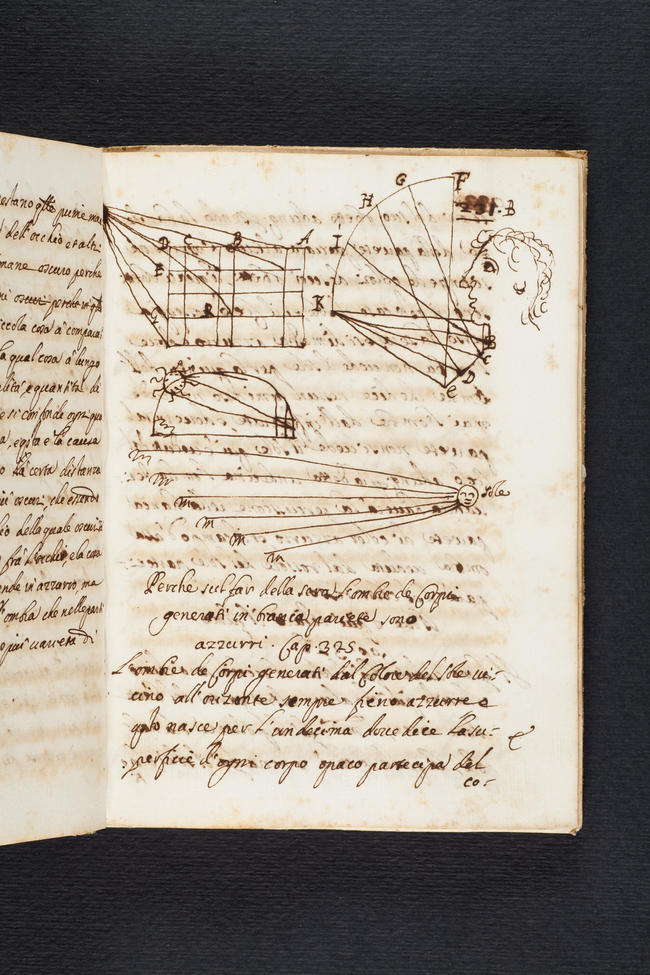 pure, ma
dell'occhio et altri
mane oscuro perche
piccola cosa à comparat
la qual cosa à lungo
elità, e quantità de
e si confonde ogni
a, e qsta e la causa
o la certa distanza
piu oscuri, che essendo
hio della quale oscurità
o frà l'occhio, e la cosa
ende in azzurro, ma
l'ombra che nelle parti
o piu varietà di
F
G
H
231. B
I
D C B A
E
K
R
G
B
C
D
e
m
m
m
m
m
m
sole
Perche sul far della sera l'ombre de Corpi
generati in bianca pariete sono
azzurri. Cap. 325
L'ombre de Corpi generati dal rossore del Sole vi-
cino all'orizonte sempre fieno azzurre e
qsto nasce per l'undecima dove dice la su-
perficie d'ogni corpo opaco partecipa del
co-